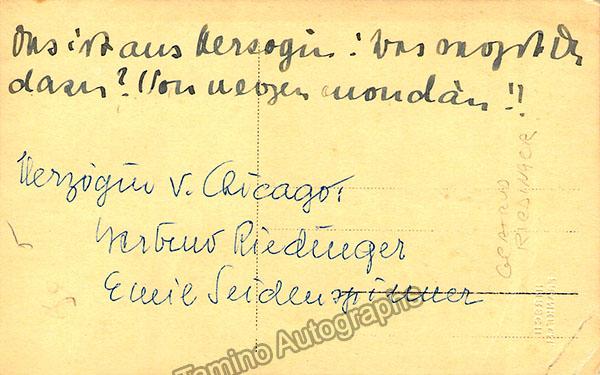 Das ist aus Herzogin! Was sagst Du
dazu? Von wegen mondän!!
Herzogin v. Chicago:
Gertrud Riedinger
Emil Seidenspinner
RIEDINGER
Tamino Autographs